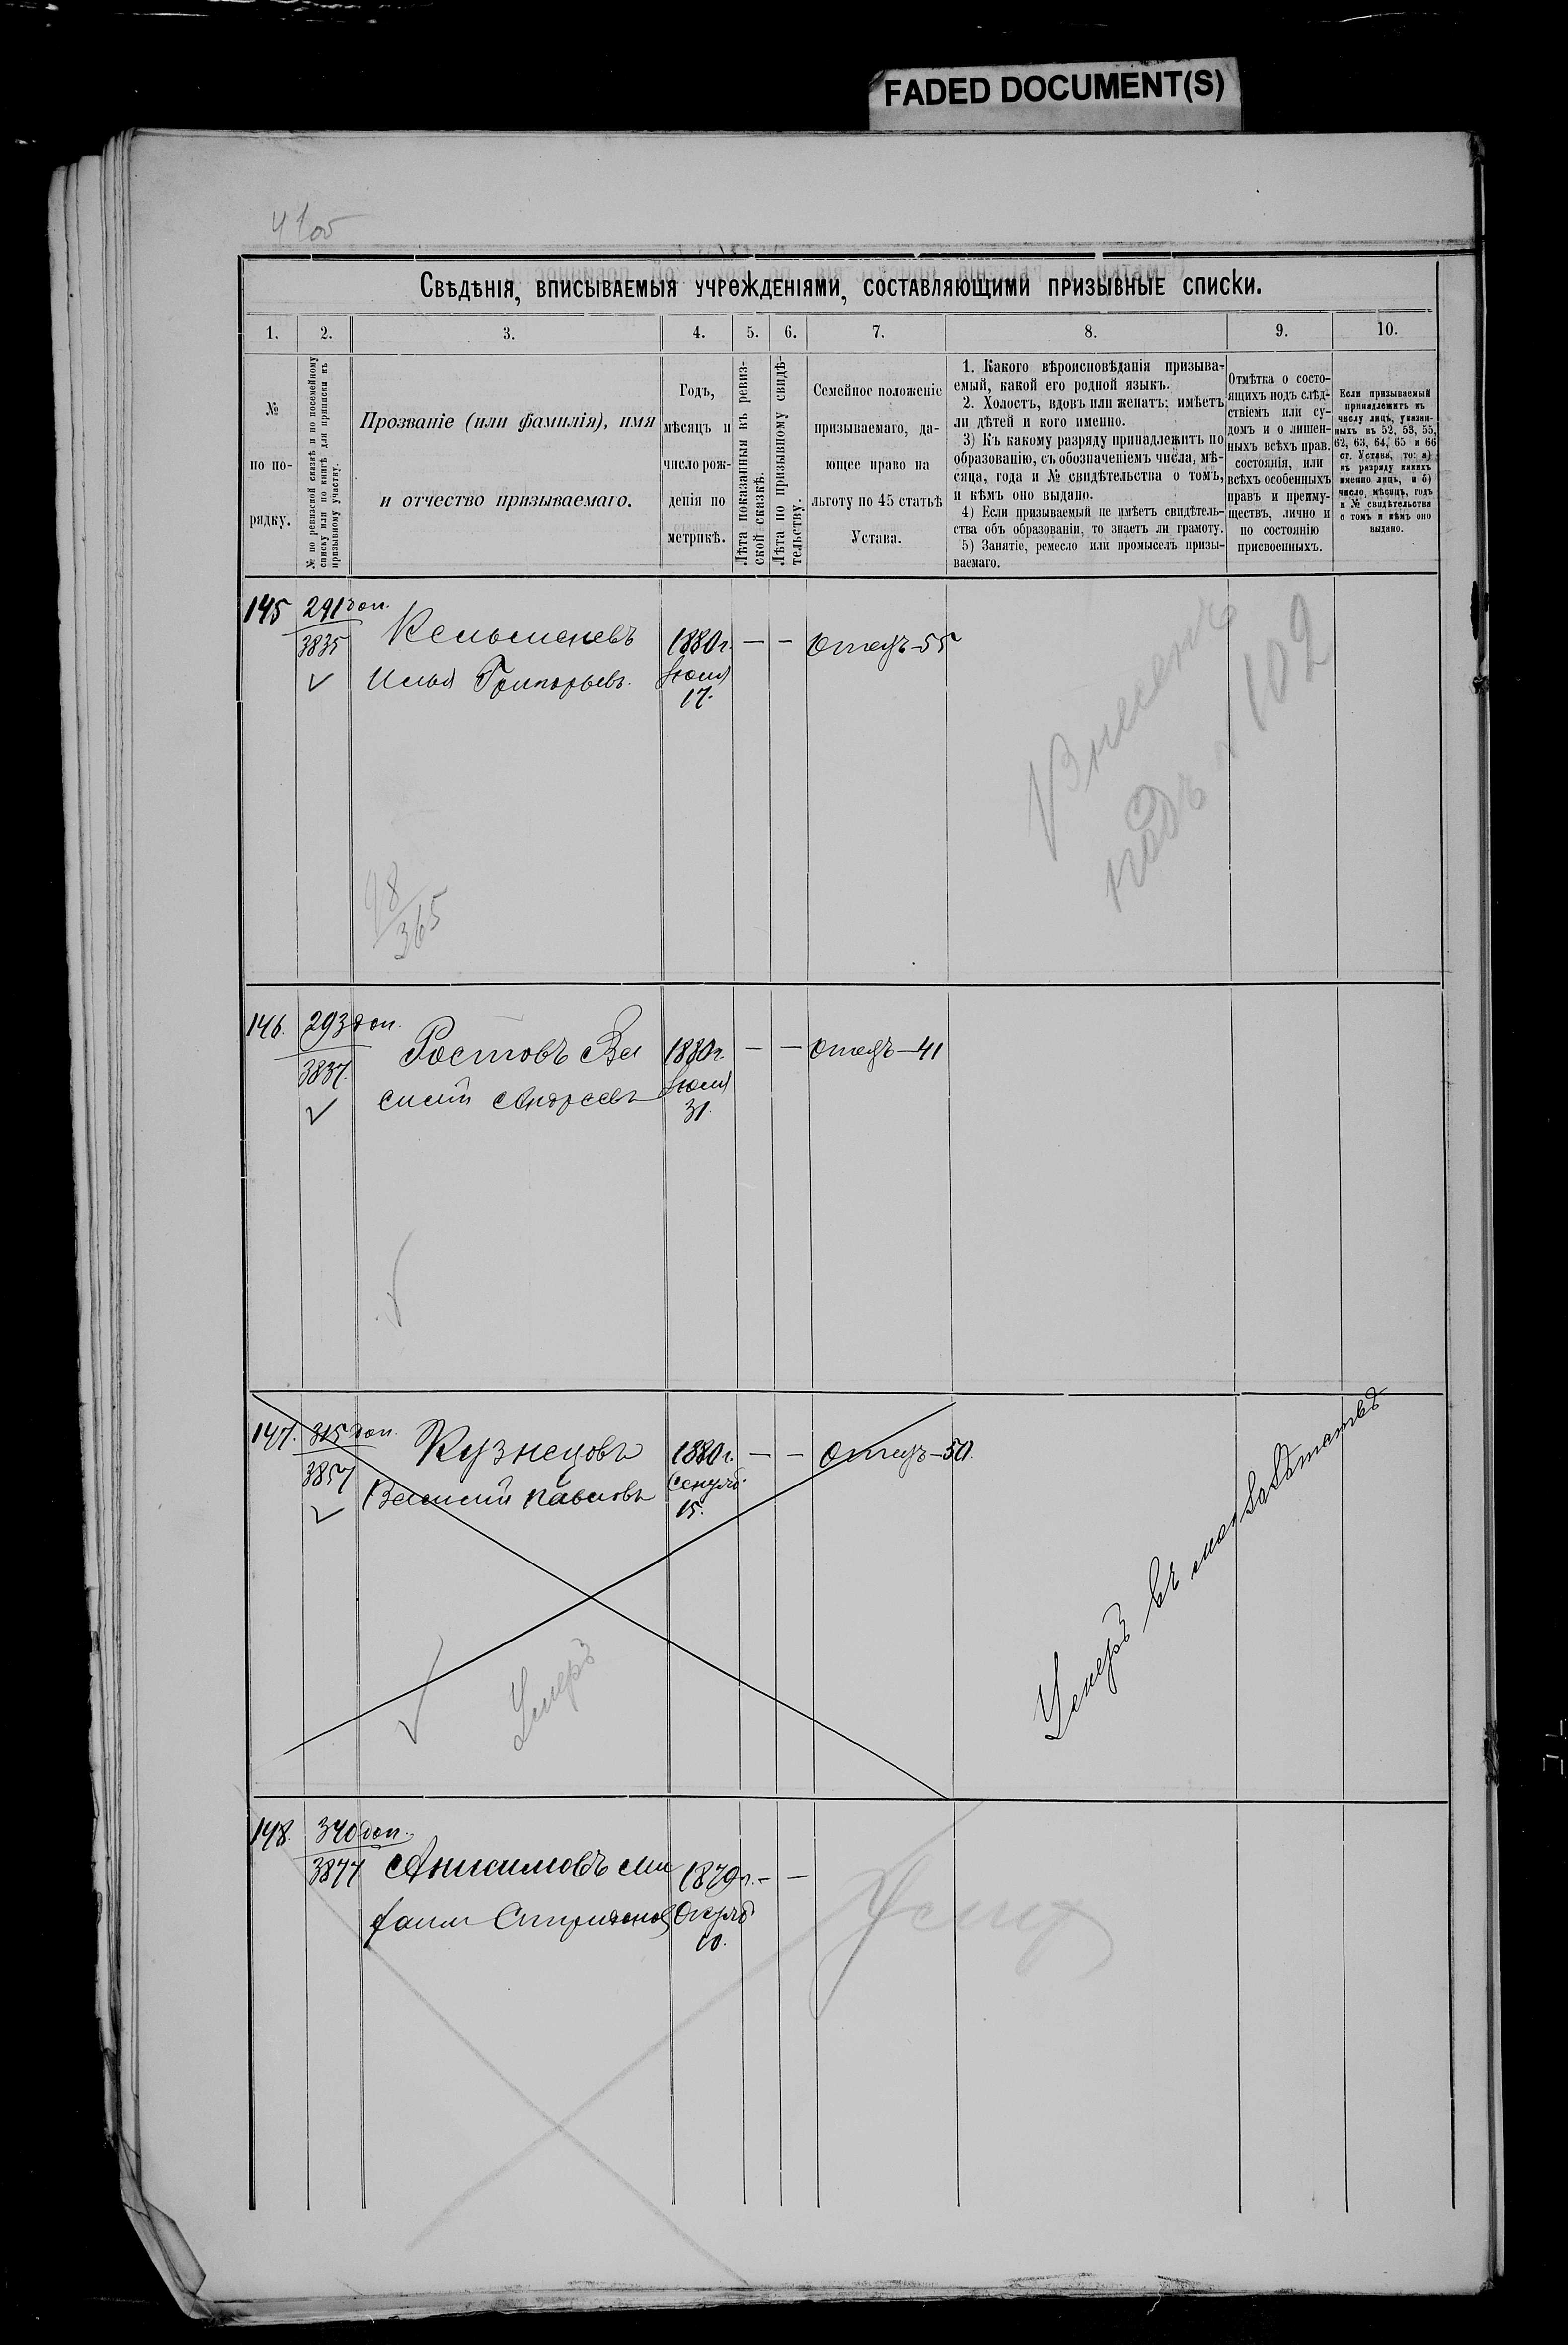 FADED DOCUMENT(S)
41об
Свѣдѣнія, вписываемыя учрежденіями, составляющими призывные списки.
1. 2. 3. 4. 5. 6. 7. 8. 9. 10.
№
по по-
рядку.
№ по ревизской сказкѣ и по посемейному
списку или по книгѣ для приписки къ
призывному участку.
Прозваніе (или фамилія), имя
и отчество призываемаго.
Годъ,
мѣсяцъ и
число рож-
денія по
метрикѣ.
Лѣта показанныя въ ревиз-
ской сказкѣ.
Лѣта по призывному свидѣ-
тельству.
Семейное положеніе
призываемаго, да-
ющее право на
льготу по 45 статьѣ
Устава.
1. Какого вѣроисповѣданія призыва-
емый, какой его родной языкъ.
2. Холостъ, вдовъ или женатъ; имѣетъ
ли дѣтей и кого именно.
3) Къ какому разряду принадлежитъ по
образованію, съ обозначеніемъ числа, мѣ-
сяца, года и № свидѣтельства о томъ,
и кѣмъ оно выдано.
4) Если призываемый не имѣетъ свидѣтель-
ства объ образованіи, то знаетъ ли грамоту.
5) Занятіе, ремесло или промыселъ призы-
ваемаго.
Отмѣтка о состо-
ящихъ подъ слѣд-
ствіемъ или су-
домъ и о лишен-
ныхъ всѣхъ прав.
состоянія, или
всѣхъ особенныхъ
правъ и преиму-
ществъ, лично и
по состоянію
присвоенныхъ.
Если призываемый
принадлежитъ къ
числу лицъ, указан-
ныхъ въ 52, 53, 55,
62, 63, 64, 65 и 66
ст. Устава, то: а)
къ разряду какихъ
именно лицъ, и б)
число, мѣсяцъ, годъ
и № свидѣтельства
о томъ и кѣмъ оно
выдано.
145 291 доп.
3835
1880 г. — — Отецъ–55
Илья Григорьевъ. Іюля
17.
Внесенъ
подъ № 102
98
365
146. 293 доп.
3837.
Ростовъ Ва 1880 г. — — Отецъ–41
силій Андреевъ Іюля
31.
147. 315 доп.
3857
Кузнецовъ 1880 г. — — Отецъ–50.
Василій Павловъ Сентяб.
15.
Умеръ
Умеръ въ
148. 340 доп.
3877.
Анисимовъ Ми 1879 г. – —
хаилъ Октяб
10.